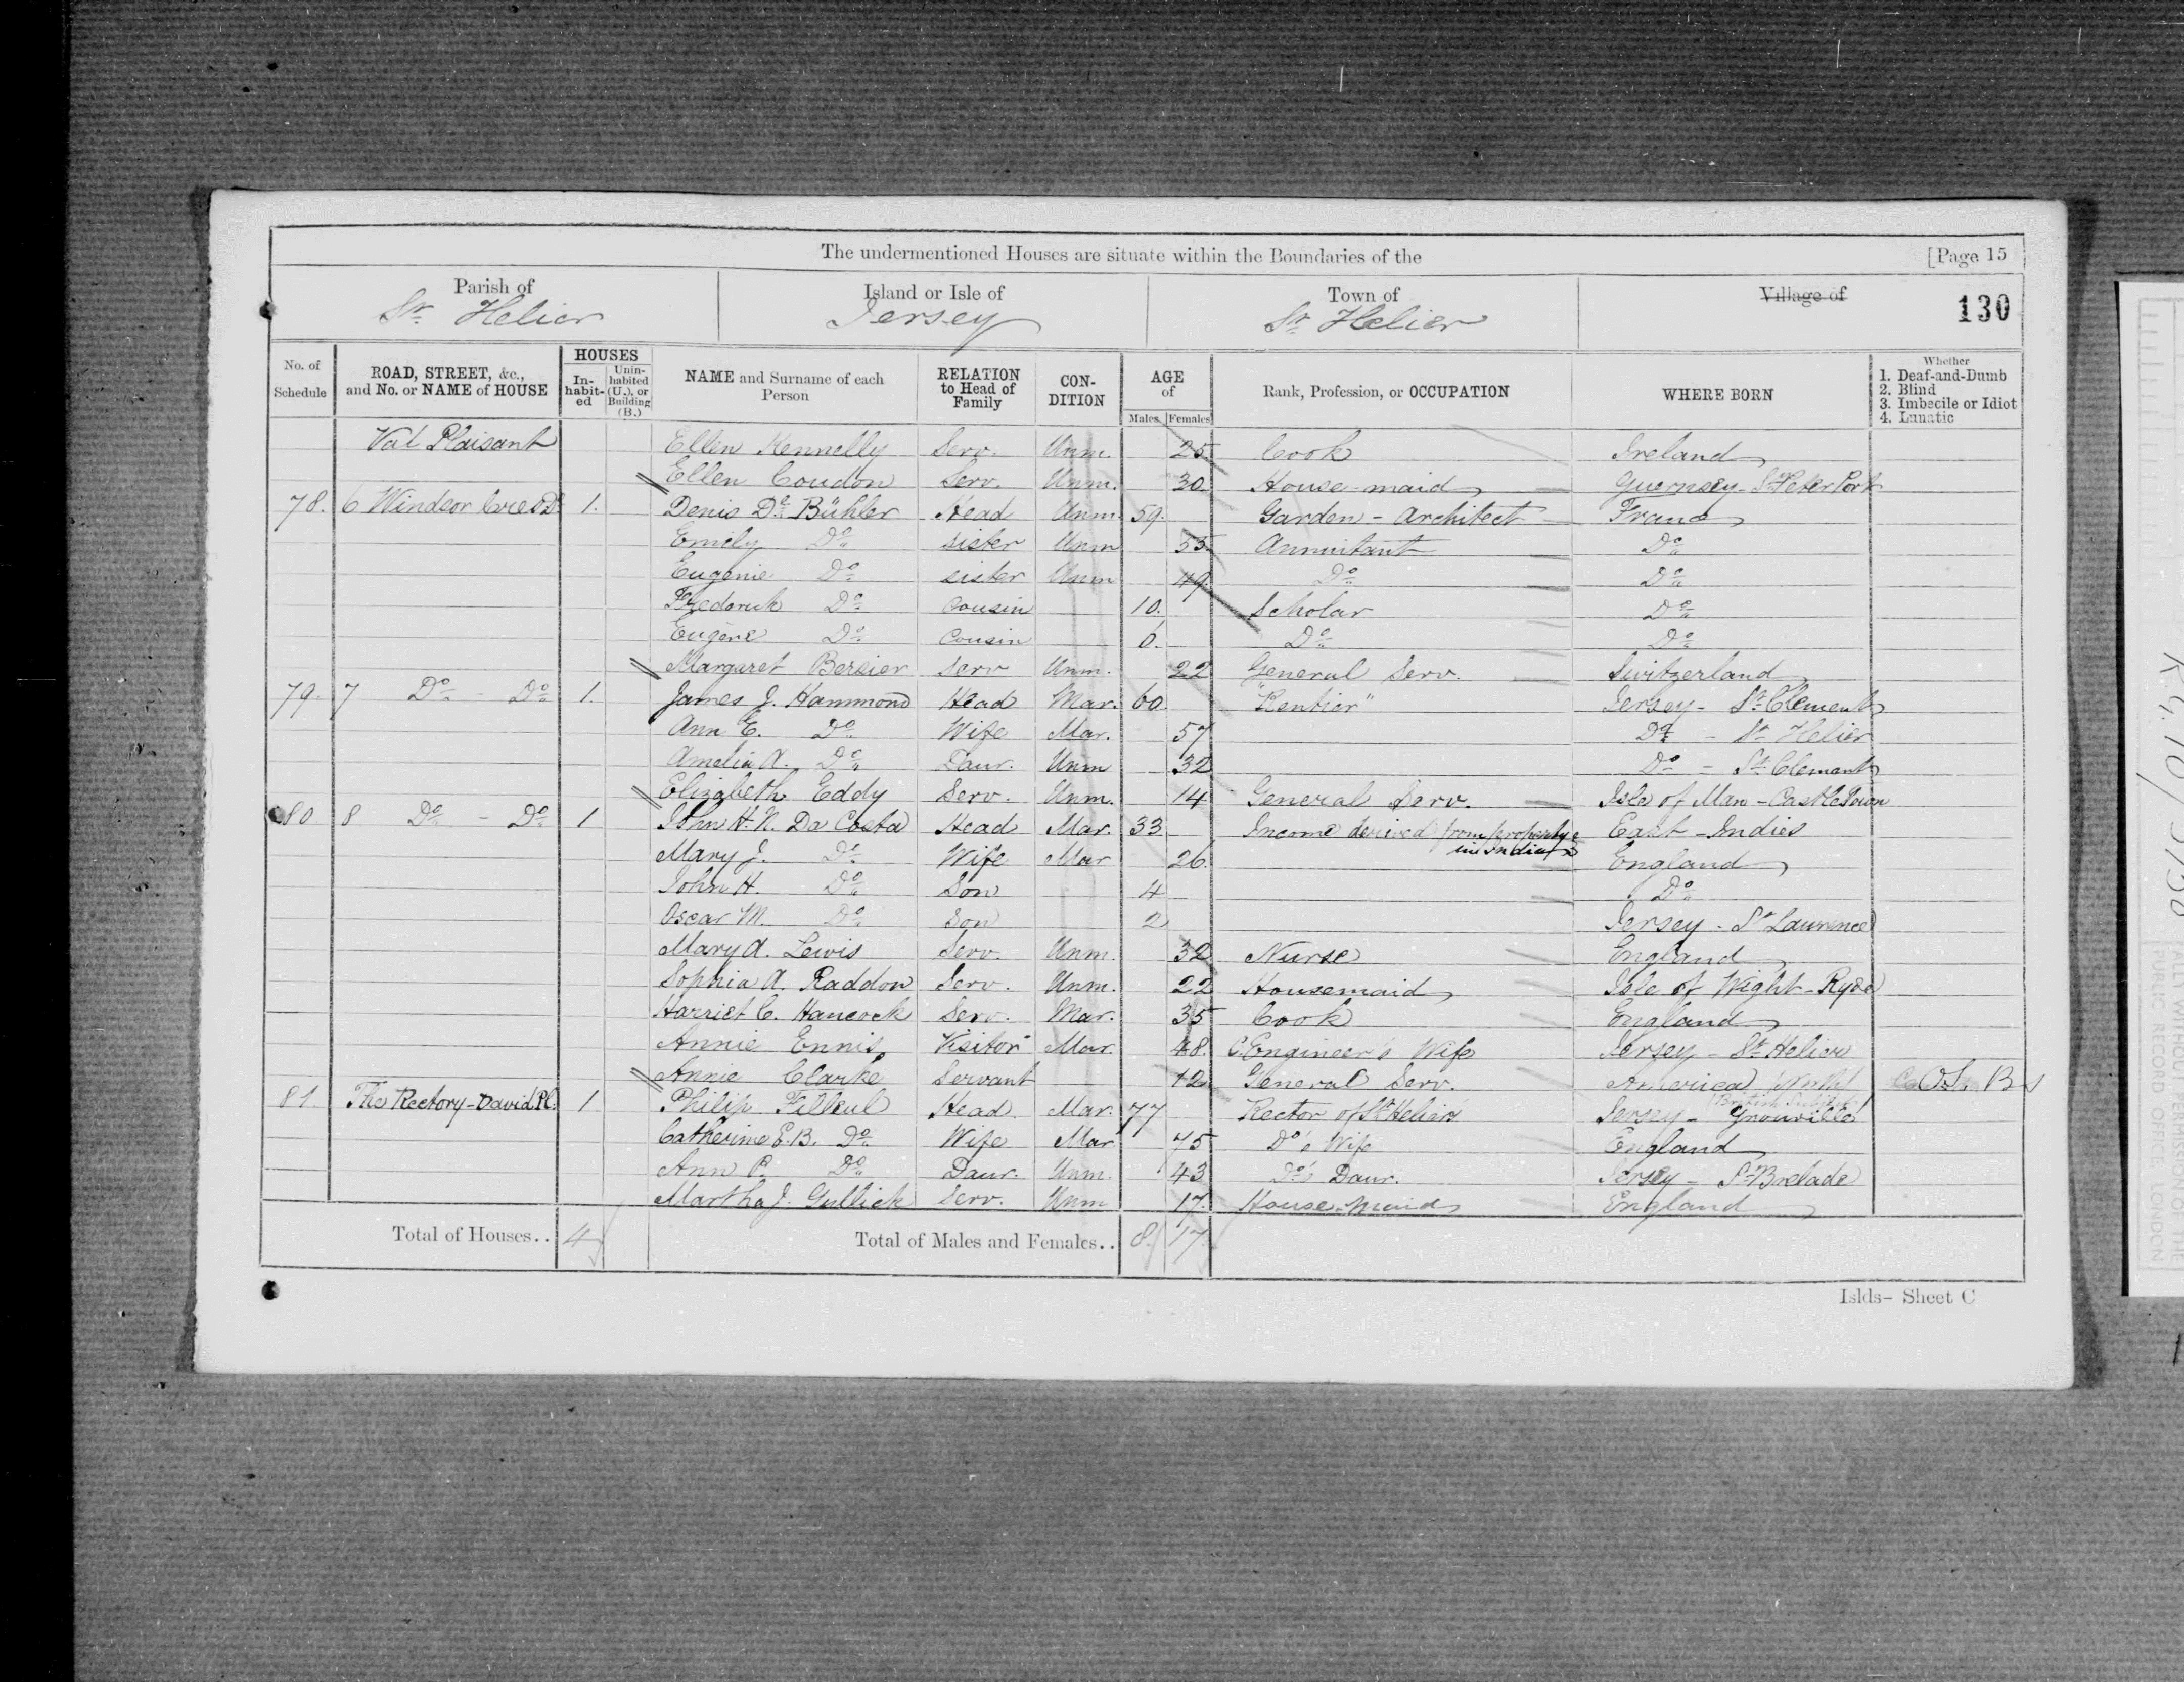 The undermentioned Houses are situate within the Boundaries of the [Page 15
Parish of Island or Isle of Town of Village of 130
St. Helier Jersey St. Helier
No. of Schedule ROAD, STREET, &c., and No. or NAME of HOUSE HOUSES In-habit-ed Unin-habited (U.), or Building (B.) NAME and Surname of each Person RELATION to Head of Family CON-DITION AGE of Males Females Rank, Profession, or OCCUPATION WHERE BORN Whether 1. Deaf-and-Dumb 2. Blind 3. Imbecile or Idiot 4. Lunatic
Val Plaisant Ellen Kennelly Serv. Unm. 25 Cook Ireland
Ellen Coudon Serv. Unm. 30 House-maid Guernsey - St Peter Port
78. 6 Windsor 1. Denis Bühler Head Unm 59. Garden - Architect France
Emily Do sister Unm 55 Annuitant Do
Eugenie Do sister Unm 49. Do Do
Frederick Do Cousin 10. Scholar Do
Eugène Do Cousin 6. Do Do
Margaret Bersier Serv Unm. 22 General Serv. Switzerland
79. 7 Do - Do 1. James J. Hammond Head Mar. 60. "Rentier" Jersey - St Clement
Ann E. Do Wife Mar. 57 Do - St Helier
Amelia A. Do Daur. Unm 32 Do - St Clement
Elizabeth Eddy Serv. Unm. 14 General Serv. Isle of Man - Castle Town
80 8 Do - Do 1 John H. N. Da Costa Head Mar. 33 Income derived from property East - Indies
in India
Mary J. Do Wife Mar 26. England
John H. Do Son 4 Do
Oscar M. Do Son 2 Jersey - St Lawrence
Mary A. Lewis Serv. Unm. 32 Nurse England
Sophia A. Raddon Serv. Unm. 22 Housemaid Isle of Wight - Ryde
Harriet C. Hancock Serv. Mar. 35 Cook England
Annie Ennis Visitor Mar. 48. C. Engineer's Wife Jersey - St Helier
Annie Clarke Servant 12 General Serv. America
British Subject
81 The Rectory - David Pl. 1 Philip Filleul Head Mar. 77 Rector of St Helier Jersey - Grouville
Catherine E. B. Do Wife Mar 75 Do's Wife England
Ann P. Do Daur. Unm. 43 Do's Daur. Jersey - St Brelade
Martha J. Gullick Serv. Unm 17. House-maid England
Total of Houses.. 4 Total of Males and Females.. 8 17
Islds- Sheet C
PUBLIC RECORD OFFICE, LONDON